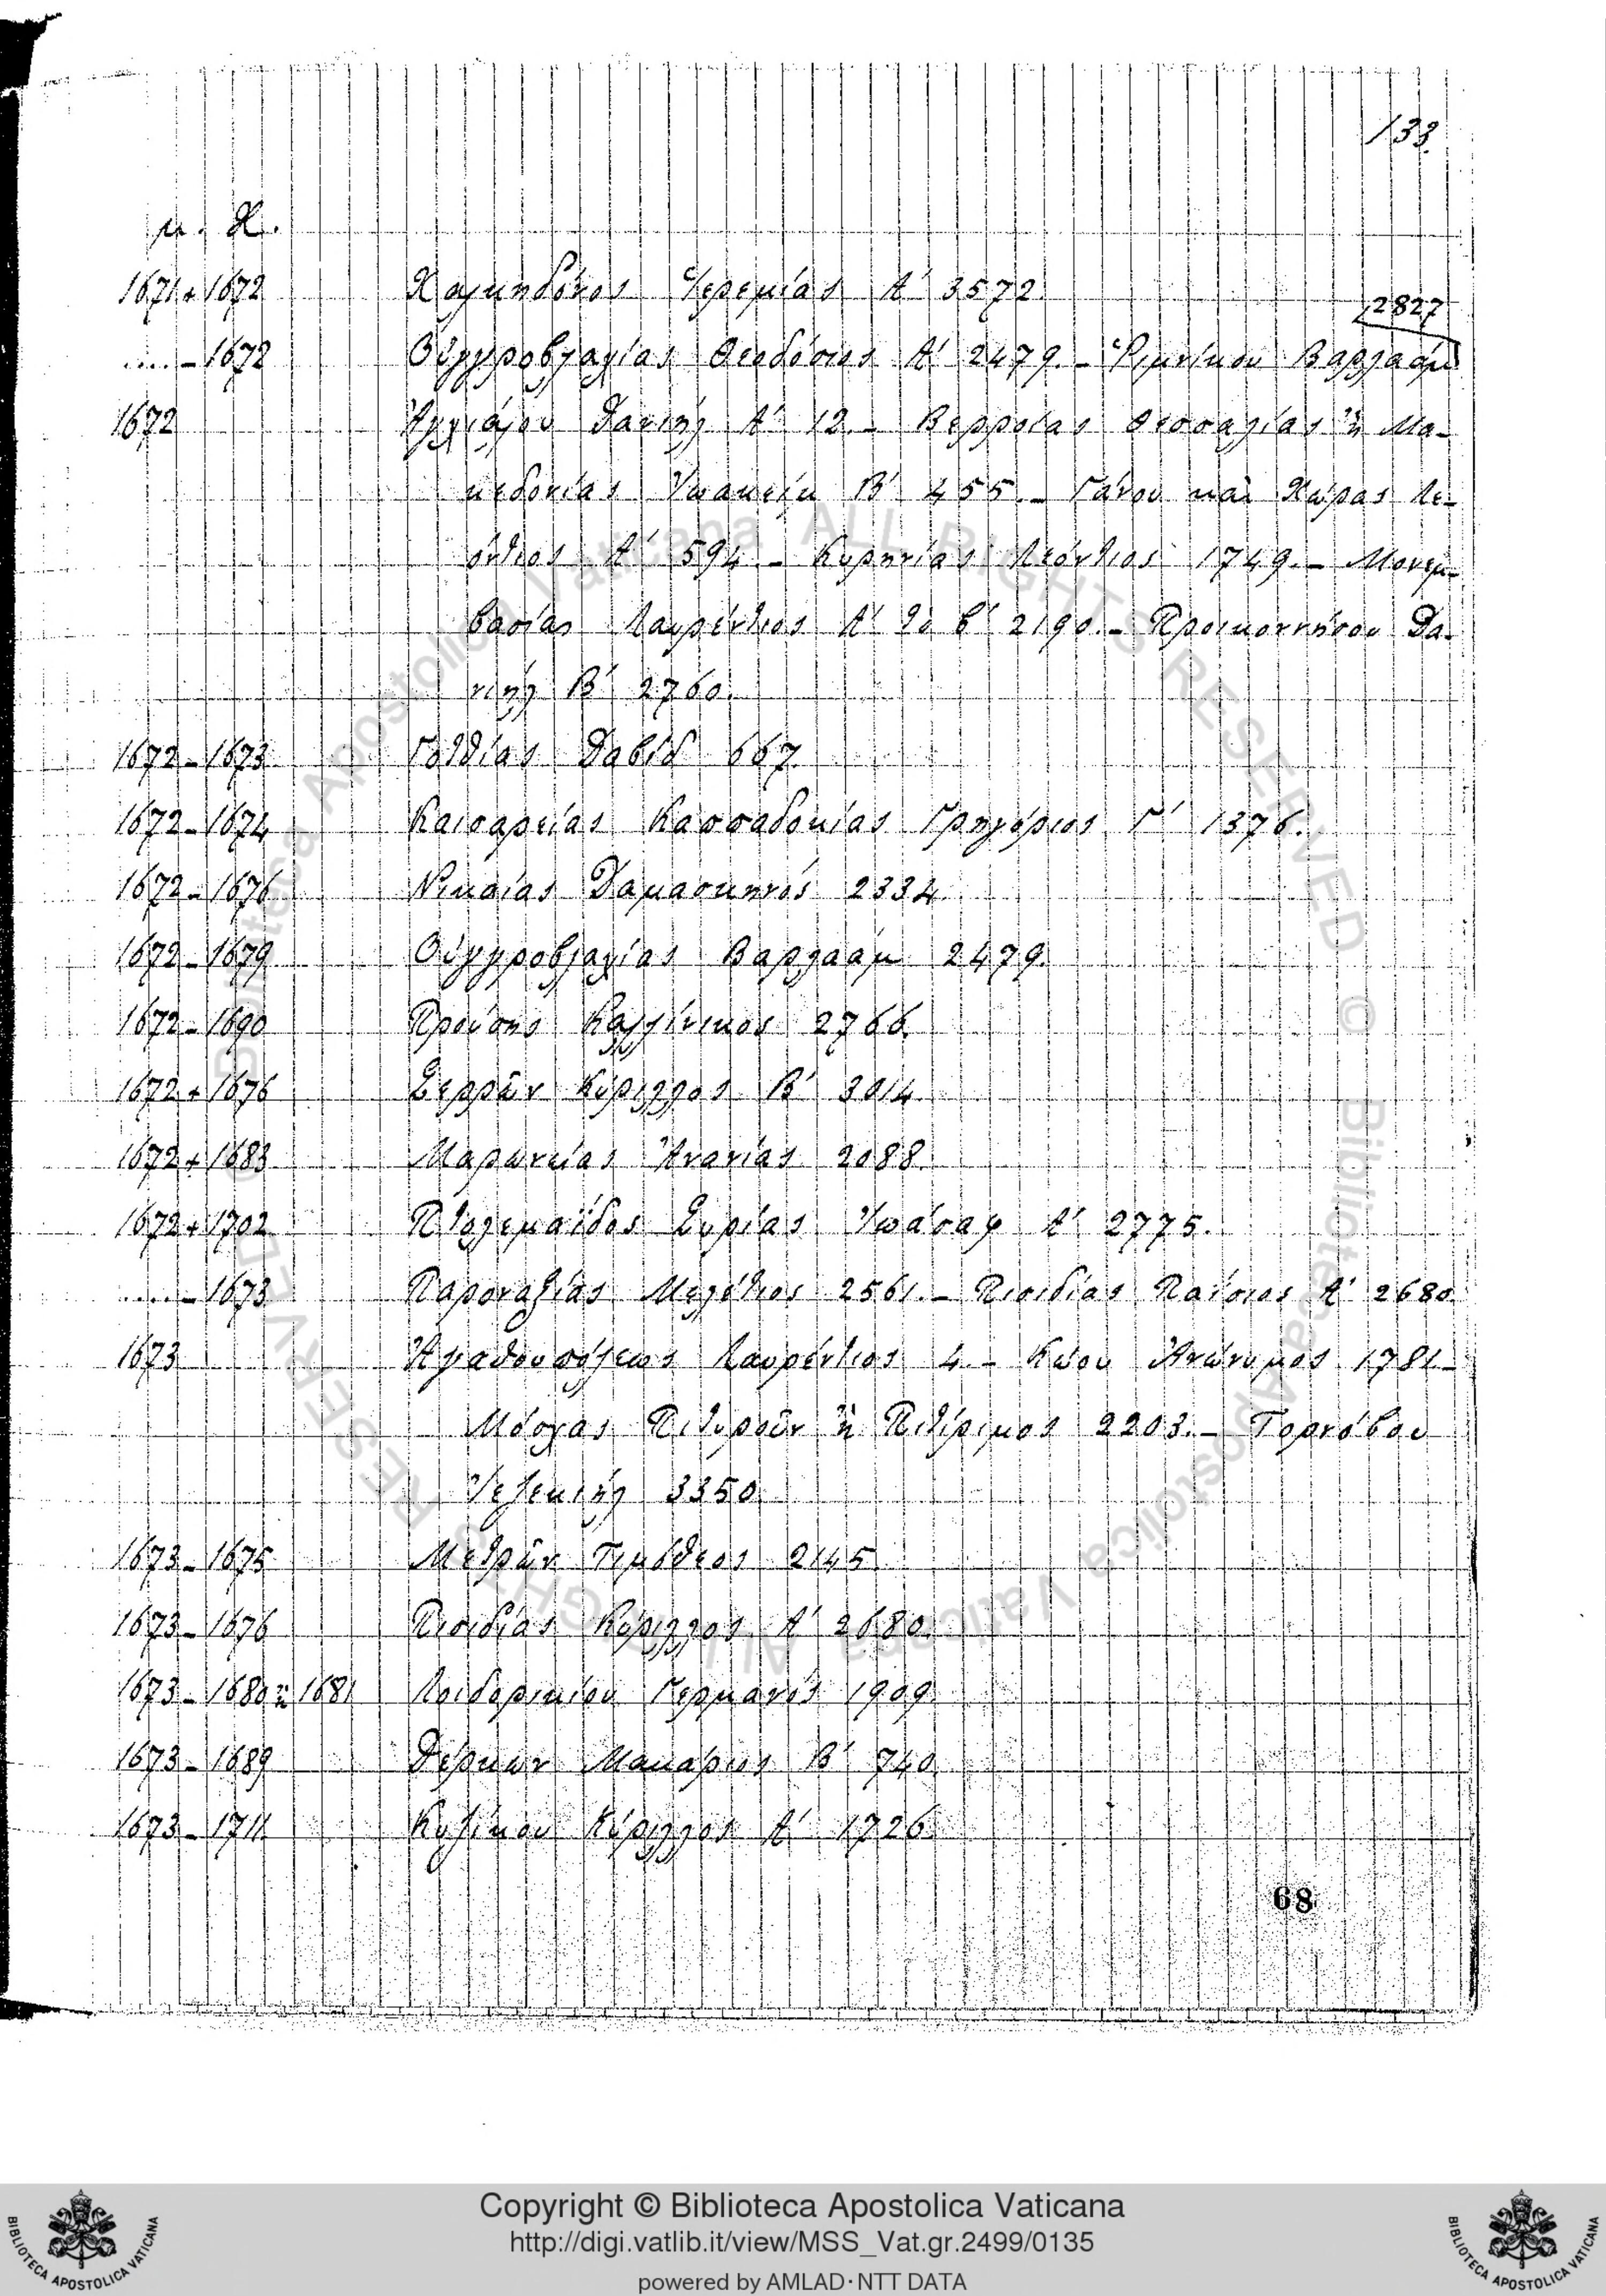 133
μ. Χ.
1671 + 1672 Χαλκηδόνος Ἱερεμίας Α' 3572
2827
.... - 1672 Οὑγγροβλαχίας Θεοδόσιος Α' 2479. - Ῥιμνίκου Βαρλαάμ
1672 Ἀγχιάλου Δανιὴλ Α' 12. - Βερροίας Θεσσαλίας ἢ Μα-
κεδονίας Ἰωακεὶμ Β' 455. - Γάνου καὶ Χώρας Λε-
όντιος Α' 594 - Κυρηνίας Λεόντιος 1749. - Μονεμ-
βασίας Λαυρέντιος Α' τὸ β' 2190. - Προικοννήσου Δα-
νιὴλ Β' 2760.
1672 - 1673 Γοτθίας Δαβίδ 667
1672 - 1674 Καισαρείας Καππαδοκίας Γρηγόριος Γ' 1376.
1672 - 1676 Νικαίας Δαμασκηνός 2334.
1672 - 1679 Οὑγγροβλαχίας Βαρλαάμ 2479.
1672 - 1690 Προύσης Καλλίνικος 2766.
1672 + 1676 Σερρῶν Κύριλλος Β' 3014
1672 + 1683 Μαρωνείας Ἀνανίας 2088
1672 + 1702 Πτολεμαΐδος Συρίας Ἰωάσαφ Α' 2775.
.... - 1673 Παροναξίας Μελέτιος 2561. - Πισιδίας Παΐσιος Α' 2680.
1673 Ἀγαθουπόλεως Λαυρέντιος 4. - Κώου Ἀνώνυμος 1781 -
Μόσχας Πιτυροῦν ἢ Πιτίριμος 2203. - Τορνόβου
Ἰεζεκιὴλ 3350
1673 - 1675 Μετρῶν Τιμόθεος 2145
1673 - 1676 Πισιδίας Κύριλλος Α' 2680.
1673 - 1680 ἢ 1681 Λοιδορικίου Γερμανός 1909
1673 - 1689 Δέρκων Μακάριος Β' 740
1673 - 1711 Κυζίκου Κύριλλος Α' 1726
68
Copyright © Biblioteca Apostolica Vaticana
http://digi.vatlib.it/view/MSS_Vat.gr.2499/0135
powered by AMLAD·NTT DATA
BIBLIOTECA APOSTOLICA VATICANA
BIBLIOTECA APOSTOLICA VATICANA